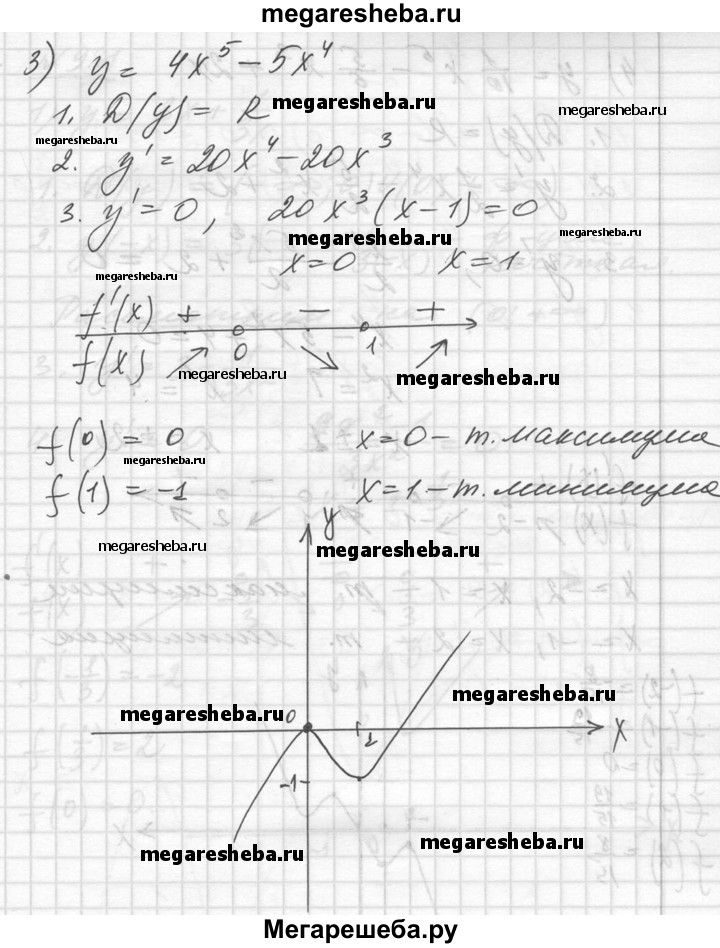 megaresheba.ru
3) y = 4x⁵ – 5x⁴
1. D(y) = R megaresheba.ru megaresheba.ru
megaresheba.ru
2. y' = 20x⁴ – 20x³
3. y' = 0, 20x³(x – 1) = 0
megaresheba.ru megaresheba.ru
x = 0 x = 1
megaresheba.ru
f'(x) + – +
0 1
f(x) ↗ ↘ ↗
megaresheba.ru megaresheba.ru
f(0) = 0 x = 0 – т. максимума
megaresheba.ru
f(1) = –1 x = 1 – т. минимума
y
megaresheba.ru megaresheba.ru
megaresheba.ru
megaresheba.ru 0
1 x
-1
megaresheba.ru megaresheba.ru
Мегарешеба.ру